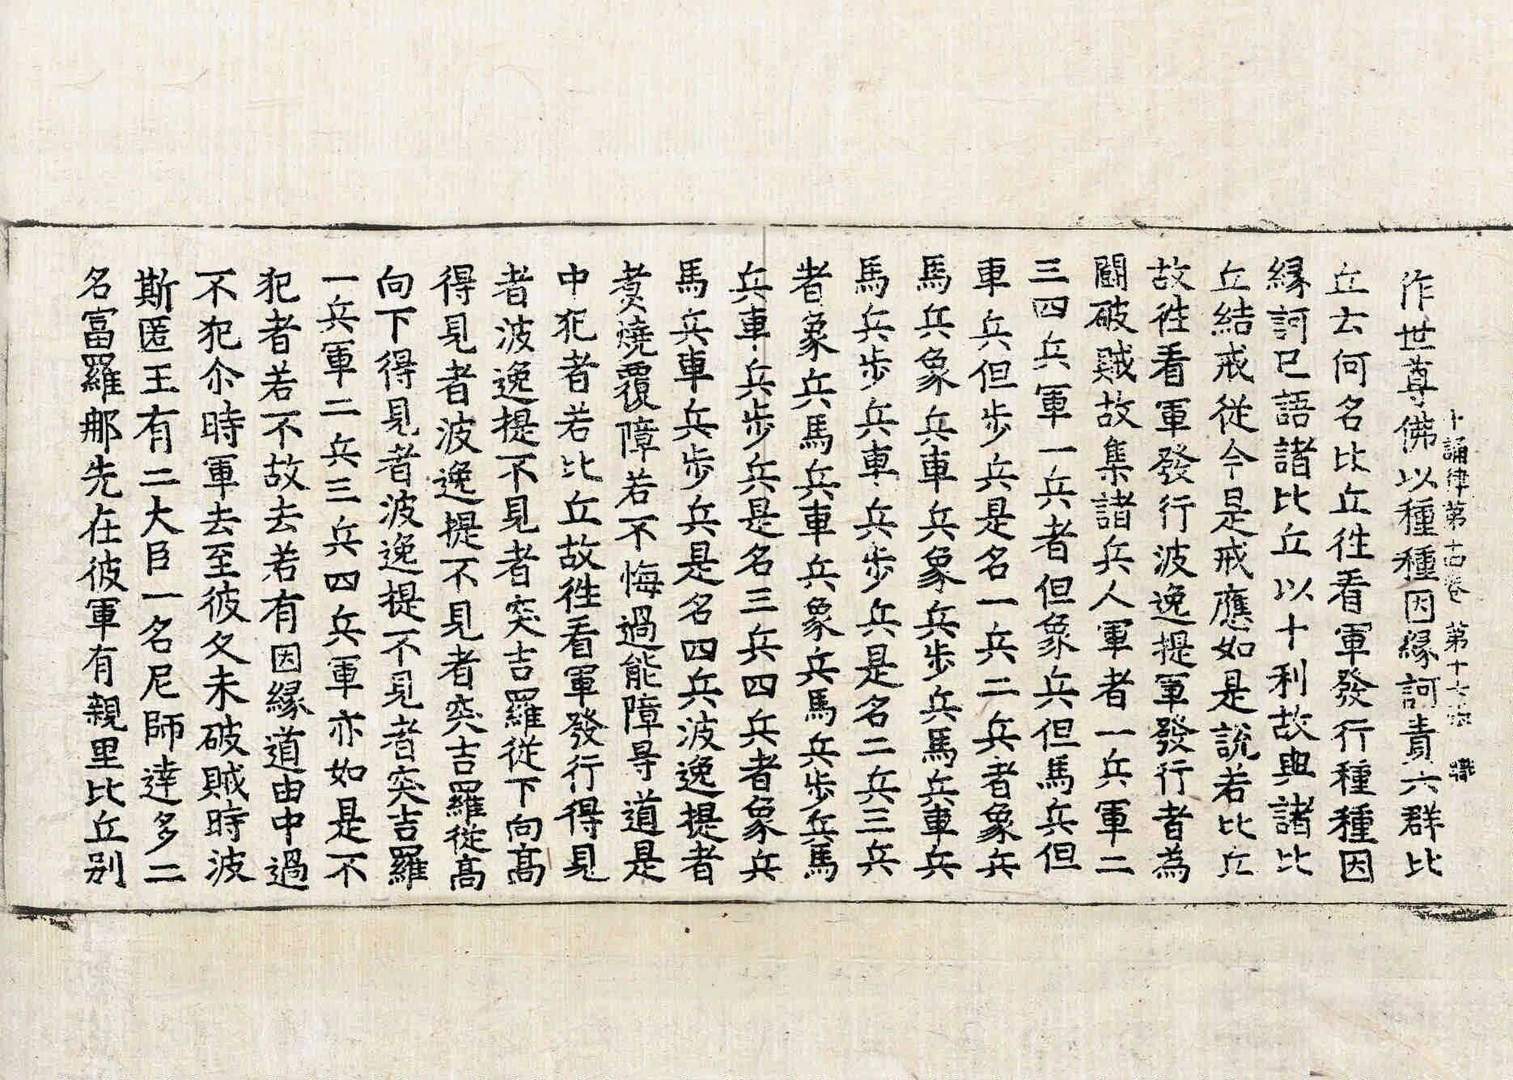 十誦律第十四卷 第十六張 職
作世尊佛以種種因緣訶責六群比
丘云何名比丘往看軍發行種種因
緣訶已語諸比丘以十利故與諸比
丘結戒從今是戒應如是說若比丘
故往看軍發行波逸提軍發行者為
鬪破賊故集諸兵人軍者一兵軍二
三四兵軍一兵者但象兵但馬兵但
車兵但步兵是名一兵二兵者象兵
馬兵象兵車兵象兵步兵馬兵車兵
馬兵步兵車兵步兵是名二兵三兵
者象兵馬兵車兵象兵馬兵步兵馬
兵車兵步兵是名三兵四兵者象兵
馬兵車兵步兵是名四兵波逸提者
煑燒覆障若不悔過能障㝵道是
中犯者若比丘故往看軍發行得見
者波逸提不見者突吉羅從下向髙
得見者波逸提不見者突吉羅從髙
向下得見者波逸提不見者突吉羅
一兵軍二兵三兵四兵軍亦如是不
犯者若不故去若有因緣道由中過
不犯尒時軍去至彼久未破賊時波
斯匿王有二大臣一名尼師達多二
名富羅那先在彼軍有親里比丘别